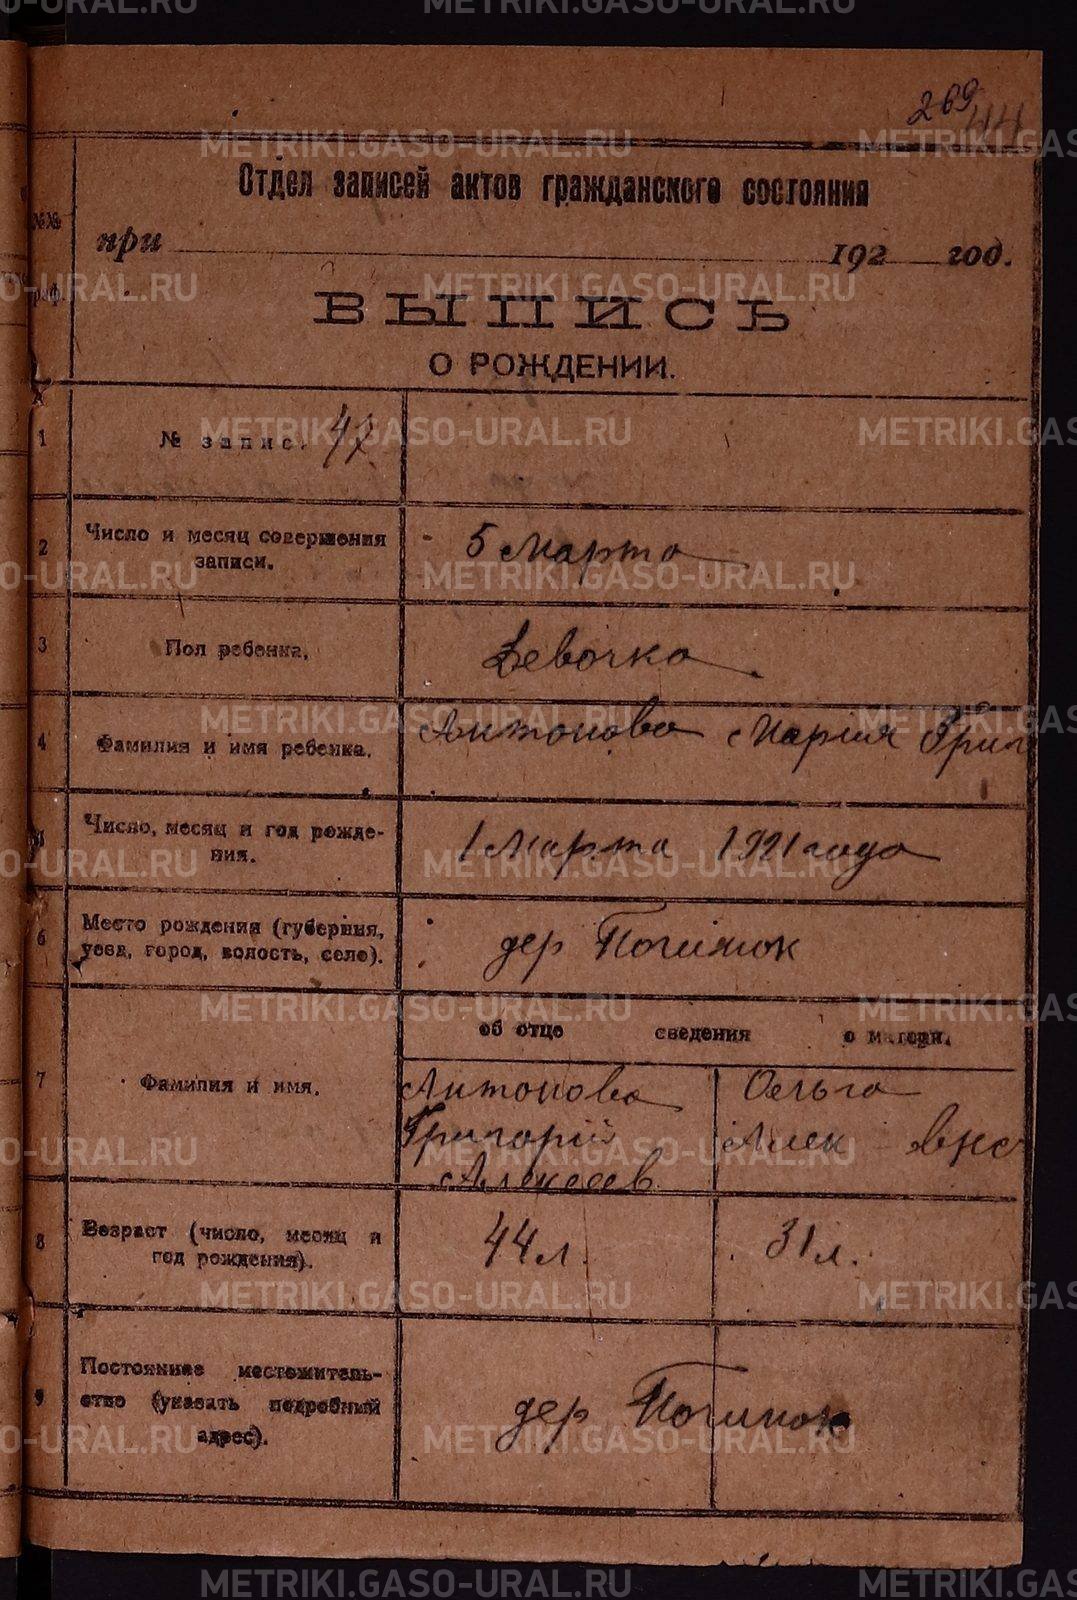 269
44
Отдел записей актов гражданского состояния
№№
граф.
при 192 год.
ВЫПИСЬ
О РОЖДЕНИИ.
1 № запис. 47
2 Число и месяц совершения записи. 5 Марта
3 Пол ребенка. Девочка
4 Фамилия и имя ребенка. Антонова Марiя Григ
Число, месяц и год рожде-
ния. 1 Марта 1921 года
6 Место рождения (губерния,
уезд, город, волость, село). дер Починок
об отце сведения о матери.
7 Фамилия и имя.
Антонова Ольга
Григорiй Алек
Алексеев
8 Возраст (число, месяц и
год рождения). 44 л. 31 л.
9 Постоянное местожитель-
ство (указать подробный
адрес). дер Починок
METRIKI.GASO-URAL.RU